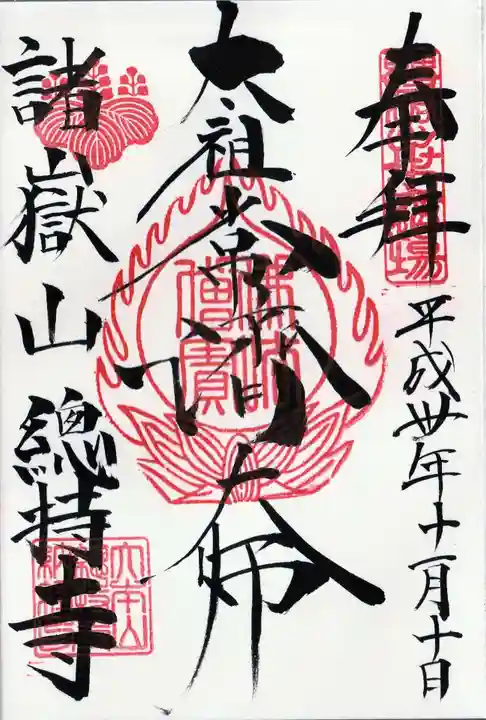 奉拝
平成卅年十一月十日
太祖常済大師
諸嶽山
總持寺